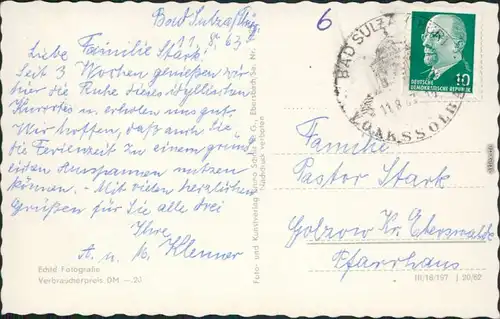 Bad Sulza/Thür.
11. 8. 63
Liebe Familie Stark!
Seit 3 Wochen genießen wir
hier die Ruhe dieses idyllischen
Kurortes u. erholen uns gut.
Wir hoffen, daß auch Sie
die Ferienzeit zu einem gründ-
lichen Ausspannen nutzen
können. - Mit vielen herzlichen
Grüßen für Sie alle drei
Ihre
A. u. M. Klemer
Echte Fotografie
Verbraucherpreis DM —.20
Foto- und Kunstverlag & Co., Eberhard
Nachdruck verboten
6
BAD SULZA
11.8.63
DEUTSCHE
DEMOKRATISCHE REPUBLIK 10
Familie
Pastor Stark
Golzow Kr. Eberswalde
Pfarrhaus
III/18/197 J 20/62